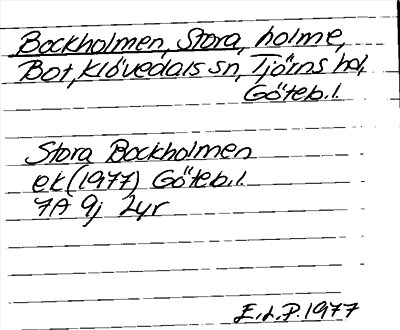 Bockholmen, Stora, holme,
Bot, Klövedals sn, Tjörns hd,
Göteb. l.
Stora Bockholmen
ek (1977) Göteb. l.
7A 9j Lyr
E. L. P. 1977